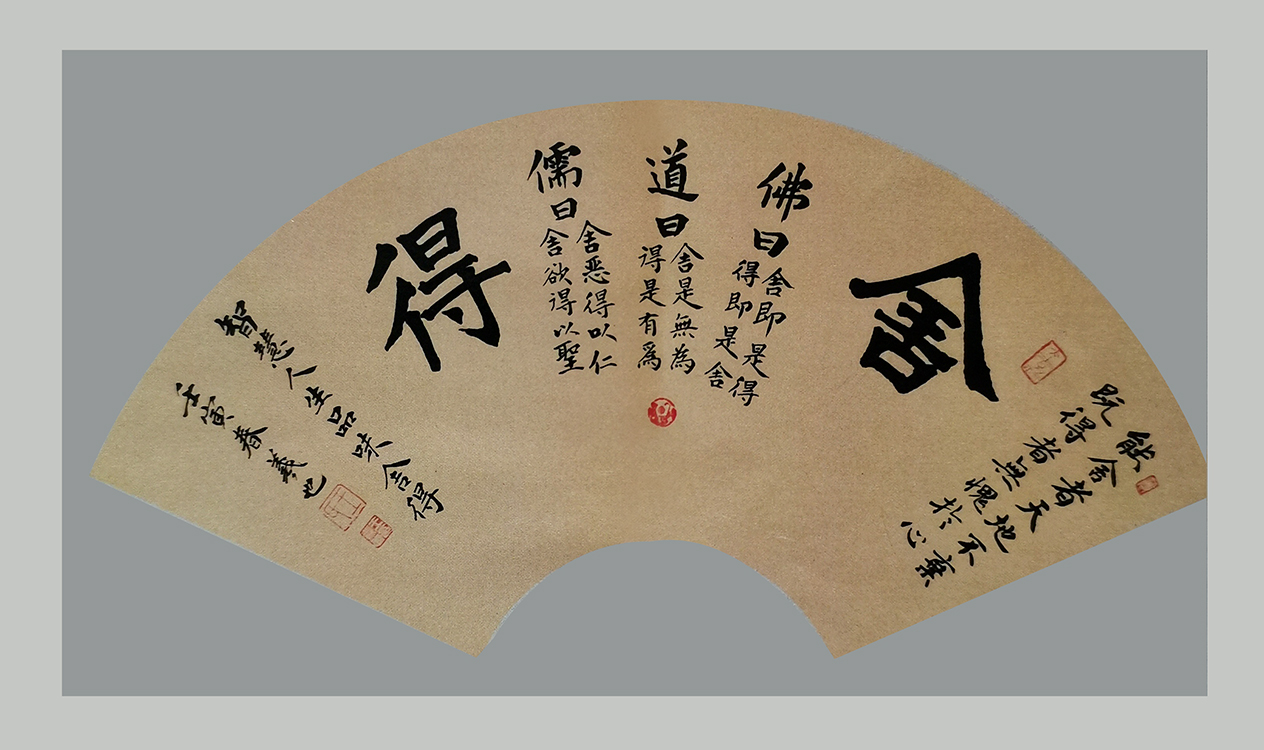 能舍者天地不棄
既得者無愧於心
舍
佛曰
舍即是得
得即是舍
道曰
舍是無為
得是有爲
儒曰
舍惡得以仁
舍欲得以聖
得
智慧人生品味舍得
壬寅春羲也